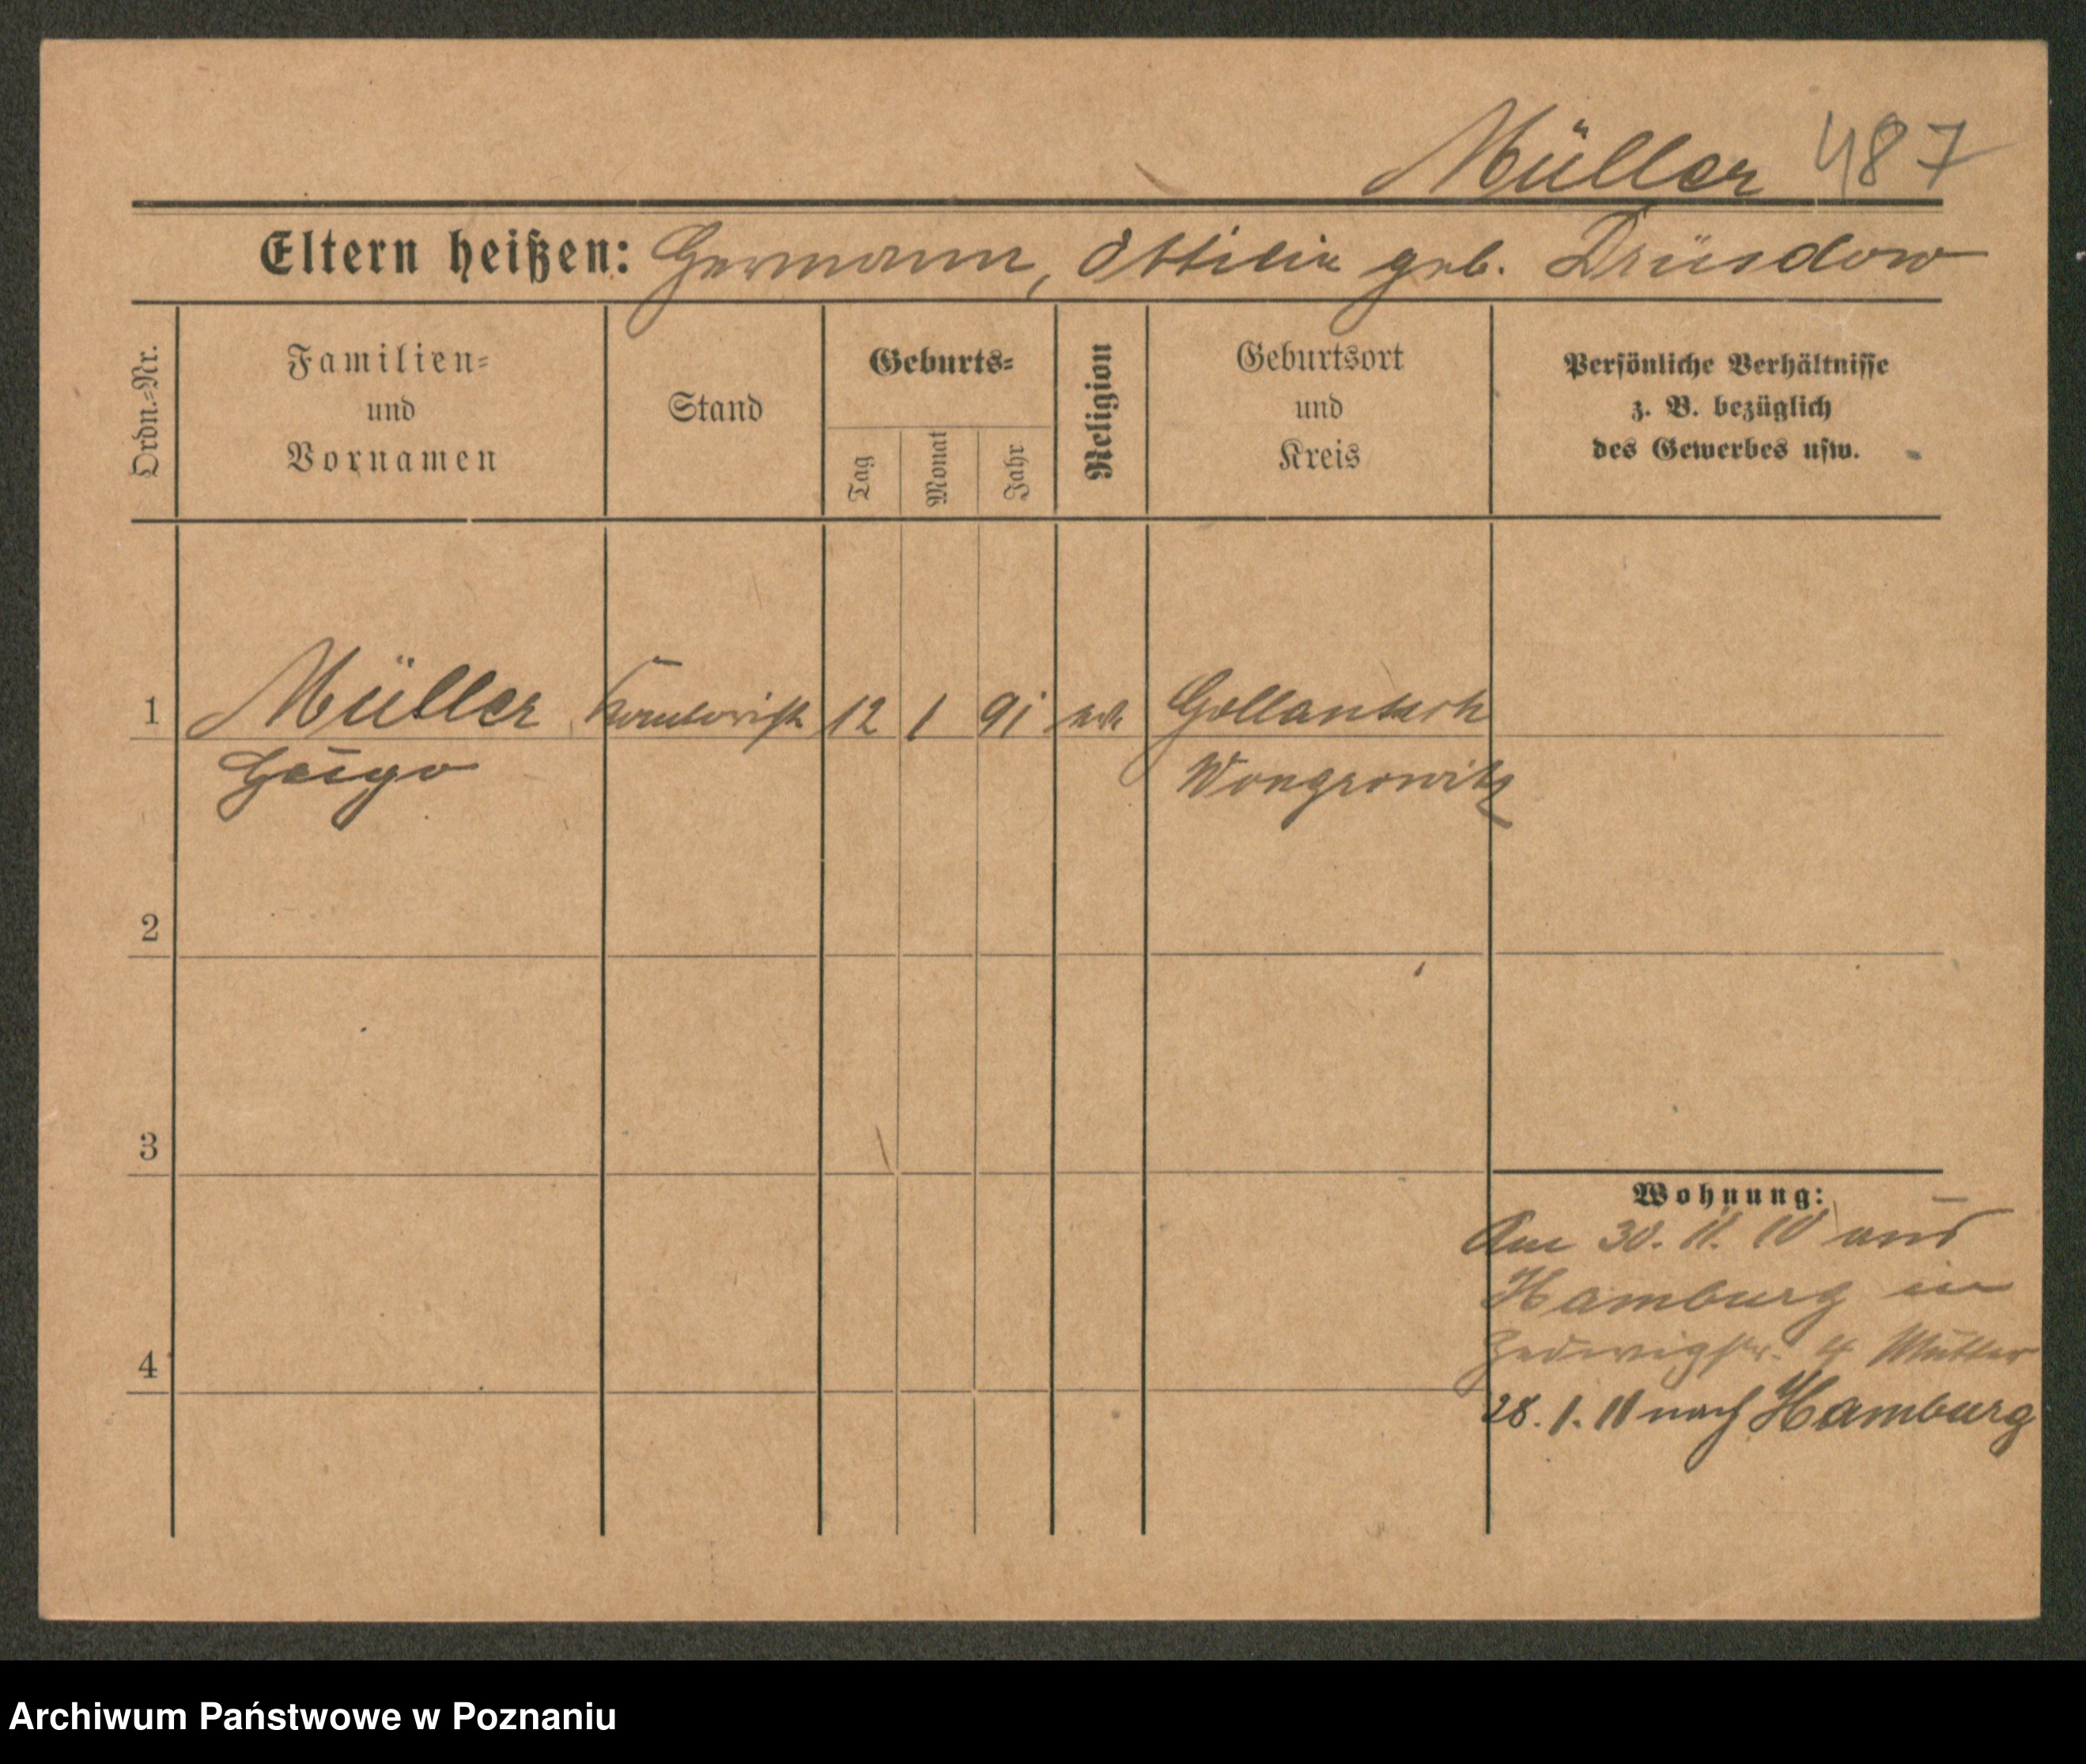 Müller 487
Eltern heißen: Hermann, Ottilie geb. Drüsdow
Ordn.-Nr.
Familien-
und
Vornamen
Stand
Geburts-
Tag
Monat
Jahr
Religion
Geburtsort
und
Kreis
Persönliche Verhältnisse
z. B. bezüglich
des Gewerbes usw.
1 Müller Kontorist 12 1 91 Gollantsch
Hugo Wongrowitz
2
3
Wohnung:
Am 30. 11. 10 aus
Hamburg in
4 Hedwigstr. 4 Mutter
28. 1. 11 nach Hamburg
Archiwum Państwowe w Poznaniu